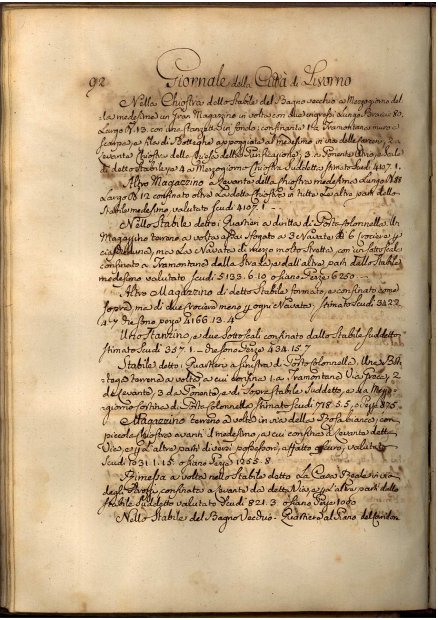 92 Giornale della Città di Livorno
Nella Chiostra dello Stabile del Bagno vecchio a Mezzogiorno del
la medesima un Gran Magazzino in volta con due ingressi Lungo Braccia 80.
Largo B. 13. con una stanzetta in fondo; confinante a Tramontana muro a
a filo di Botteghe appoggiate al medesimo in via delle 2. a
Levante Chiostra della Purificazione; 3. a Ponente
di detto Stabile, 4 a Mezzogiorno Chiostra suddetta stimato Scudi 4071.
Altro Magazzino a Levante della Chiostra medesima Lungo B. 58
Largo B. 12 confinato oltre la detta Chiostra in tutte le altre parti dallo
Stabile medesimo, valutato scudi 4107.1.
Nello Stabile detto i Quartieri a diritta di Porta Colonnella. Un
Magazzino terreno a volta sfogato a 3 Navate di 6
ciascheduna, ma la Navata di mezzo molto stretta, con un sottoscala
confinato a Tramontana dalla Strada e dall'altre parti dallo Stabile
medesimo valutato scudi 5133.6.10 o siano Pezze 6250.
Altro Magazzino di detto Stabile formato, e confinato come
sopra ma di due meno per ogni Navata. stimato Scudi 3422.
4.7 che sono pezze 4166.13.4
Uno Stanzino, e due Sottoscali confinato dallo Stabile suddetto
stimato Scudi 357.1. che sono Pezze 434.15.7
Stabile detto i Quartieri a sinistra di Porta Colonnella. Una Bot
tega terrena a volta a cui confina 1. a Tramontana Via 2
a Levante, 3 a Ponente, e di Sopra stabile Suddetto, e a Mezzo
giorno cortina di Porta Colonnella stimato scudi 718.5.5. o Pezze 875.
Magazzino terreno a volte in via della Rosa bianca, con
piccola chiostra avanti il medesimo, a cui confina a Levante detta
Via, e per l'altre parti diversi possessori, affatto oscuro, valutato
Scudi 1031.1.15 o siano Pezze 1255.8
Rimessa a volta nello Stabile detto La Casa Reale in via
degli confinata a Levante da detta Via, e per l'altre parti dallo
Stabile Suddetto valutato Scudi 821.3. o siano Pezze 1000
Nello Stabile del Bagno Vecchio. Quartiere al Piano del Landon